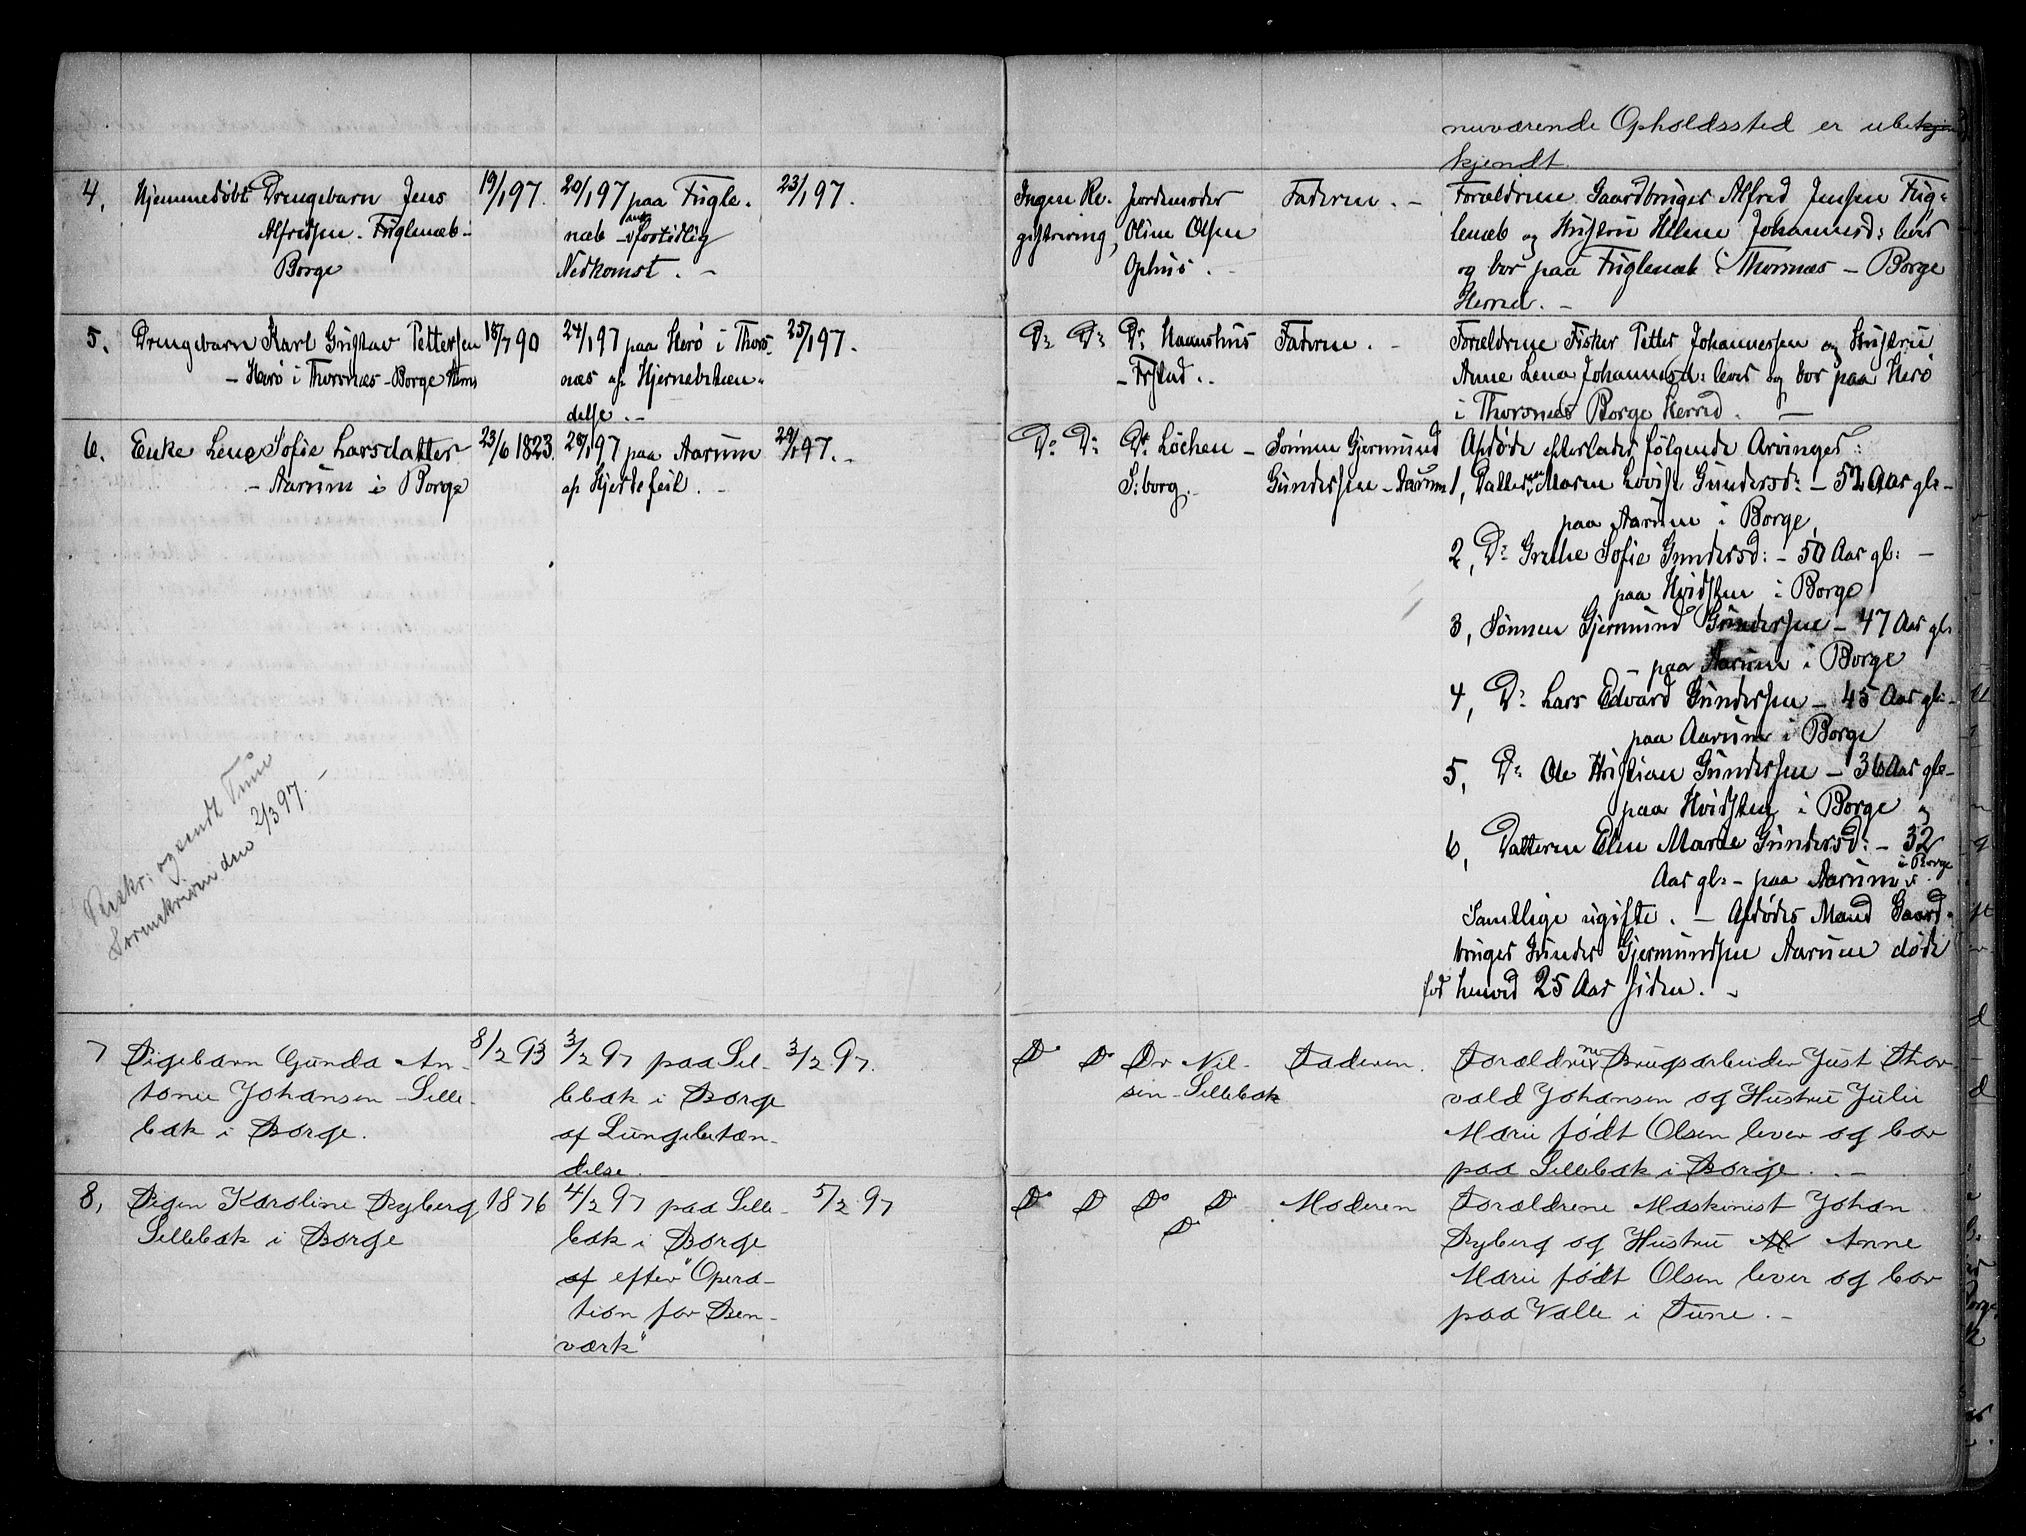 nuværende Opholdssted er ube
kjendt.
4, Hjemmedøbt Drengebarn Jens
Alfredsen. Fuglenæb -
Borge
19/1 97.
20/1 97 paa Fugle-
næb - af fortidlig
Nedkomst. -
23/1 97.
Ingen Re-
gistrering,
Jordemoder
Oline Olsen
Ophus. -
Faderen. -
Forældrene Gaardbruger Alfred Jensen Fug-
lenæb og Hustru Helene Johannesd: lever
og bor paa Fuglenæb i Thorsnæs - Borge
Herred. -
5. Drengebarn Karl Gustav Pettersen
- Herø i Thorsnæs - Borge Herred
18/7 90
24/1 97 paa Herø i Thors-
næs af Hjernebetæn-
delse. -
25/1 97.
Do Do
Dr. Haanshus
- Fr.stad..
Faderen. -
Forældrene Fisker Petter Johannessen og Hustru
Anne Lena Johannesd: lever og bor paa Herø
i Thorsnæs Borge Herred. -
6. Enke Lene Sofie Larsdatter
- Aarum i Borge
23/6 1823.
28/1 97 paa Aarum
af Hjertefeil. -
29/1 97. -
Do Do
Dr. Løchen -
S:borg.
Sønnen Gjermund
Gundersen - Aarum
Afdøde efterlader følgende Arvinger:
1, Datteren Maren Lovise Gundersd: - 52 Aar gl: -
paa Aarum i Borge,
2, Do Grethe Sofie Gundersd: - 50 Aar gl: -
paa Hvidsten i Borge
3, Sønnen Gjermund Gundersen - 47 Aar gl:
- paa Aarum i Borge
4, Do Lars Edvard Gundersen - 45 Aar gl: -
paa Aarum i Borge
5, Do Ole Kristian Gundersen - 36 Aar gl: -
paa Hvidsten i Borge og
6, Datteren Elen Marie Gundersd: - 32
Aar gl: - paa Aarum i Borge.
Samtlige ugifte. - Afdødes Mand Gaard-
bruger Gunder Gjermundsen Aarum døde
for henved 25 Aar siden. -
Udskr: og sendt Tune
Sorenskriveri den 2/3 97. -
7 Pigebarn Gunda An-
tonie Johansen - Selle-
bak i Borge.
8/2 93
3/2 97 paa Sel-
lebak i Borge
af Lungebetæn-
delse.
3/2 97.
Do Do
Dr Nil-
sen - Sellebak
Faderen.
Forældrene Brugsarbeider Just Thor-
vald Johansen og Hustru Julie
Marie født Olsen lever og bor
paa Sellebak i Borge. . -
8, Pigen Karoline Ryberg
Sellebak i Borge
1876
4/2 97 paa Selle-
bak i Borge
af efter "Opera-
tion for Ben-
værk"
5/2 97
Do Do
Do Do
Do
Moderen
Forældrene Maskinist Johan
Ryberg og Hustru Anne
Marie født Olsen lever og bor
paa Valle i Tune. -